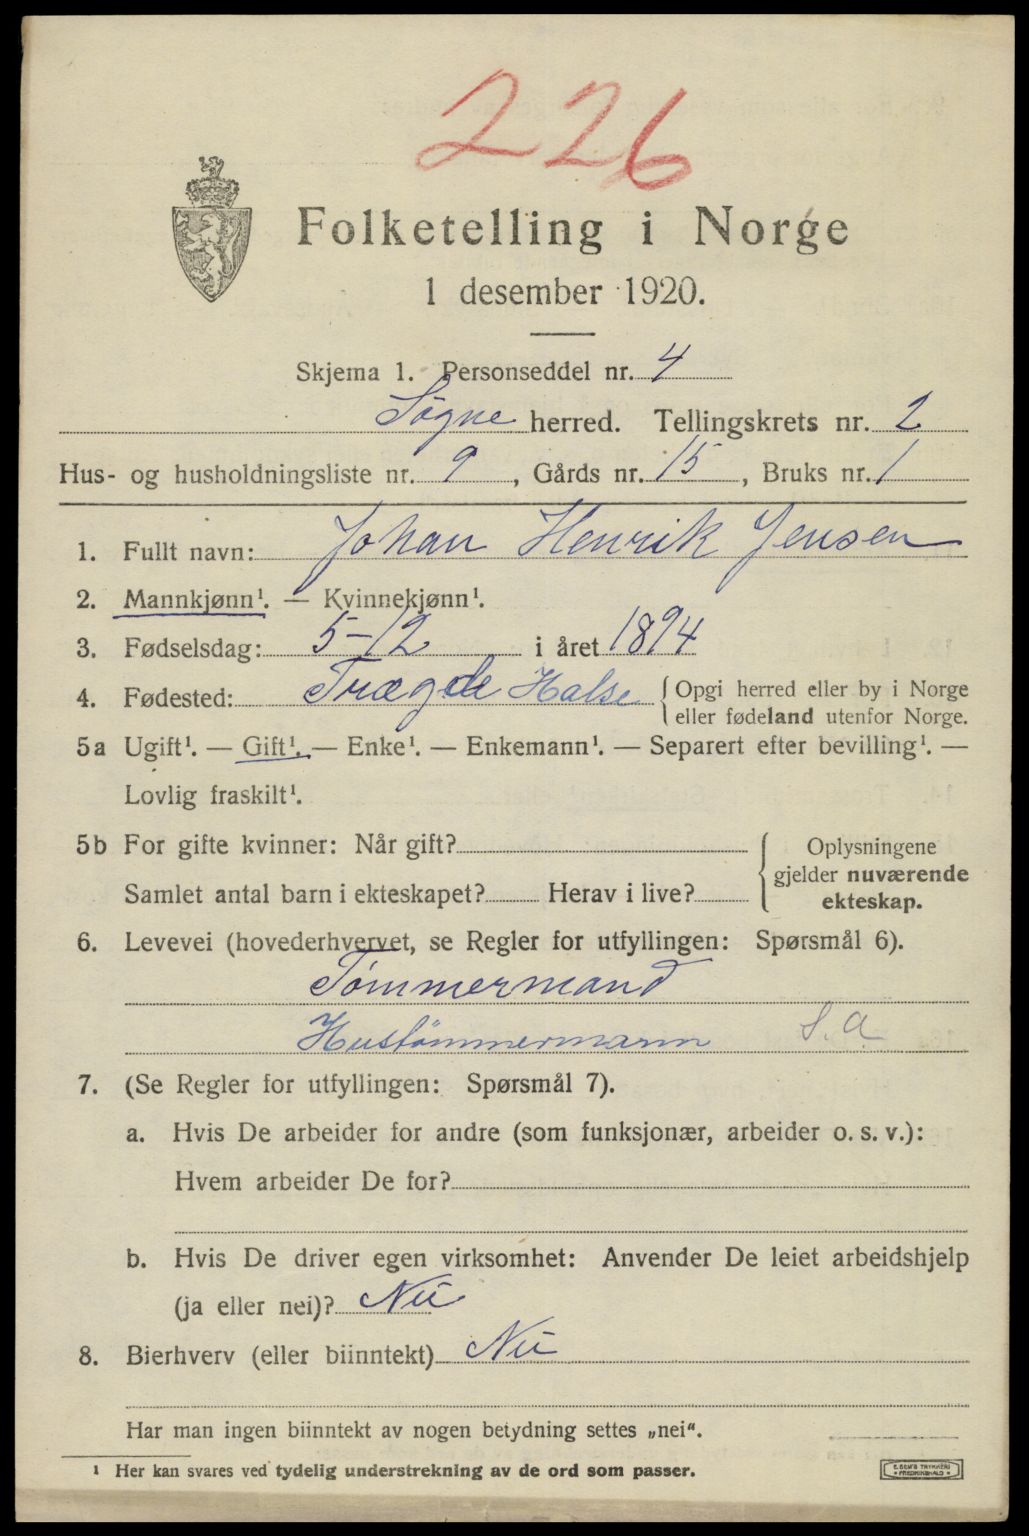 226
Folketelling i Norge
1 desember 1920.
Skjema 1. Personseddel nr. 4
Søgne herred. Tellingskrets nr. 2
Hus- og husholdningsliste nr. 9, Gårds nr. 15, Bruks nr. 1
1. Fullt navn: Johan Henrik Jensen
2. Mannkjønn¹. — Kvinnekjønn¹.
3. Fødselsdag: 5-12 i året 1894
4. Fødested: Trægde Halse { Opgi herred eller by i Norge
eller fødeland utenfor Norge.
5a Ugift¹. — Gift¹. — Enke¹. — Enkemann¹. — Separert efter bevilling¹. —
Lovlig fraskilt¹.
5b For gifte kvinner: Når gift?
Samlet antal barn i ekteskapet? Herav i live?
Oplysningene
gjelder nuværende
ekteskap.
6. Levevei (hovederhvervet, se Regler for utfyllingen: Spørsmål 6).
Tømmermand
Hustømmermann S. a
7. (Se Regler for utfyllingen: Spørsmål 7).
a. Hvis De arbeider for andre (som funksjonær, arbeider o. s. v.):
Hvem arbeider De for?
b. Hvis De driver egen virksomhet: Anvender De leiet arbeidshjelp
(ja eller nei)? Nei
8. Bierhverv (eller biinntekt) Nei
Har man ingen biinntekt av nogen betydning settes „nei“.
¹ Her kan svares ved tydelig understrekning av de ord som passer.
E. SEM'S TRYKKERI
• FREDRIKSHALD •